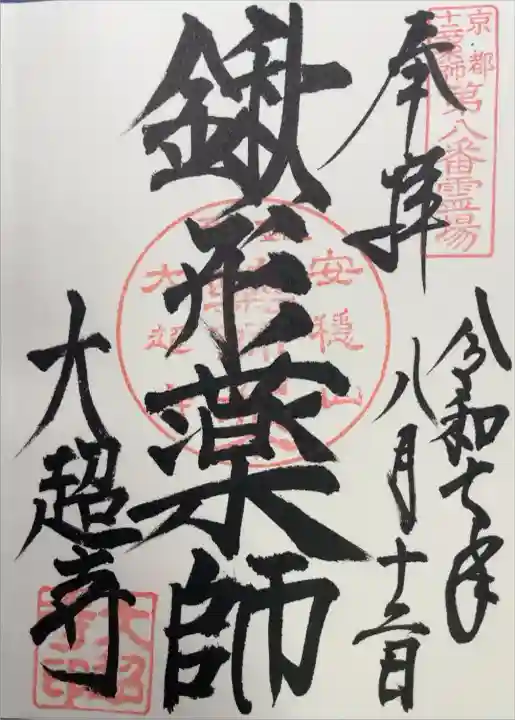 京都
十二薬師
第八番霊場
奉拝
令和七年
八月十二日
鍬形薬師
安穏山
大超寺
大超寺
大超寺印